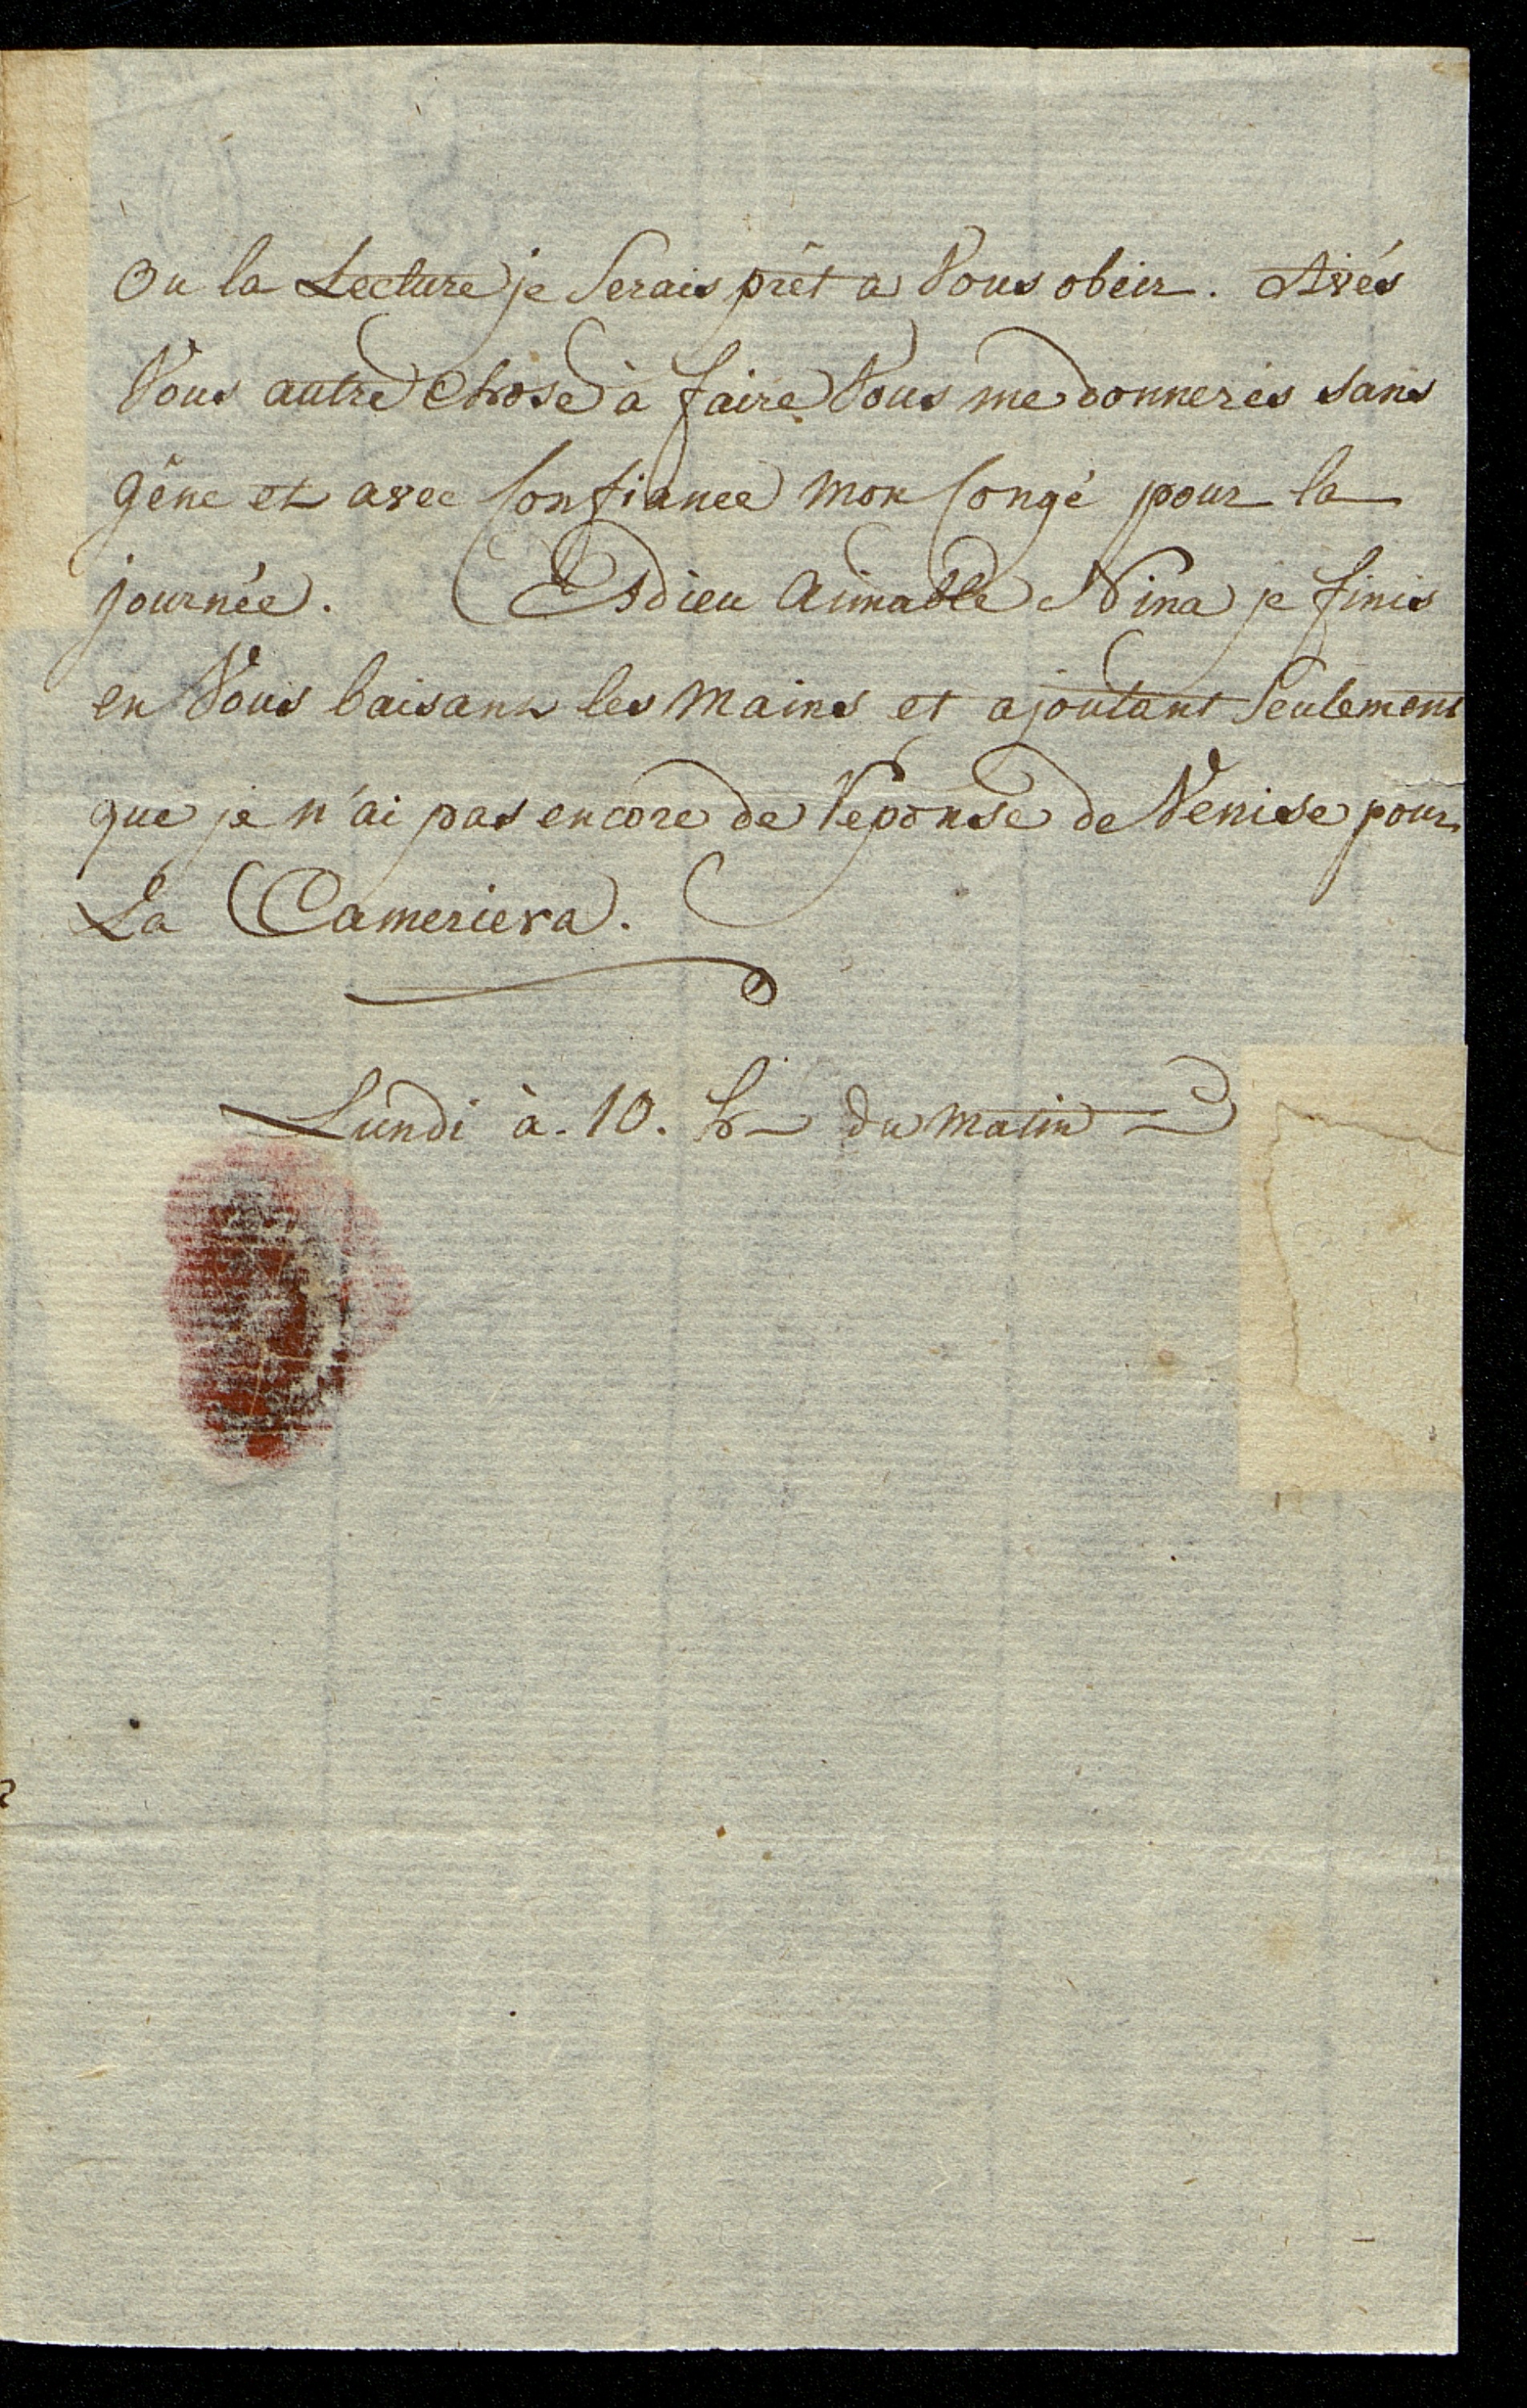 Ou la Lecture je Serais prêt a Vous obeir. Avés
Vous autre Chose à faire Vous me donnerés sans
gêne et avec Confiance mon Congé pour la
journée. Adieu Aimable Nina je finis
en Vous baisant les mains et ajoutant Seulement
que je n'ai pas encore de Reponse de Venise pour
La Cameriera.
Lundi à 10. h du matin